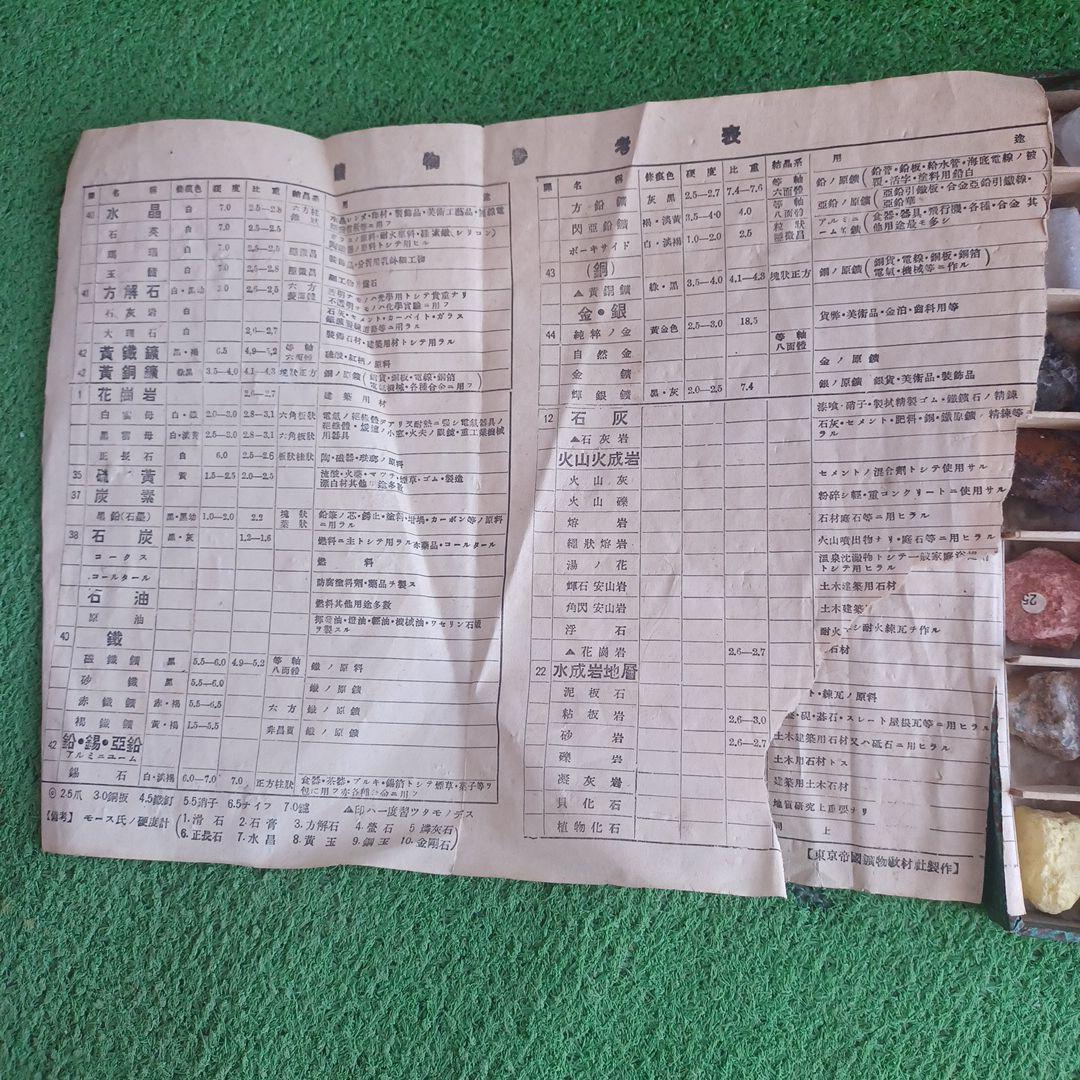 物參考表
類 名稱 條痕色 硬度 比重 結晶系 用途
40 水晶 白 7.0 2.5–2.8 六方柱錐狀
石英 白 7.0 2.5–2.5
瑪瑙 白 7.0 2.5–2.5 腎臓昌
玉髓 白 7.0 2.6–2.8 腎臓昌
41 方解石 3.0 2.6–2.5 六方
石灰岩 石灰・セメント・カーベイト・ガラス
大理石 2.6–2.7 裝飾石材・建築用材トシテ用ラル
42 黃鐵鑛 黒・褐 6.5 4.9–5.2 等軸六面體 硫酸・紅柄ノ原料
42 黃銅鑛 綠黒 3.5–4.0 4.1–4.3 塊狀正方 銅ノ原鑛(銅貨・銅板・電線・銅箔 電氣機械・各種合金ニ用フ)
1 花崗岩 2.6–2.7 建築用材
白雲母 白・鐵 2.0–3.0 2.8–3.1 六角板狀
黒雲母 白・淡黃 2.5–3.0 2.8–3.1 六角板狀
正長石 白 6.0 2.5–2.6 板狀柱狀 陶・磁器・琺瑯ノ原料
35 硫黃 黃 1.5–2.5 2.0–2.5 硫酸・火藥・マツチ・煙草・ゴム・製造 漂白材其他用途多數
37 炭素
黒鉛(石墨) 黒・黒幼 1.0–2.0 2.2 塊狀葉狀 鉛筆ノ芯・錆止・塗料・坩堝・カーボン等ノ原料ニ用ラル
38 石炭 黒・灰 1.2–1.6 燃料ニ主トシテ用ラル亦藥品・コールタール
コークス 燃料
コールタール 防腐塗料劑・藥品ヲ製ス
石油 燃料其他用途多數
原油 揮發油・燈油・輕油・機械油・ワセリン石蠟ヲ製スル
40 鐵
磁鐵鑛 黒 5.5–6.0 4.9–5.2 等軸八面體 鐵ノ原料
砂鐵 黒 5.5–6.0 鐵ノ原鑛
赤鐵鑛 赤・褐 5.5–6.5 六方 鐵ノ原鑛
褐鐵鑛 黃・褐 1.5–5.5 非昌質 鐵ノ原鑛
42 鉛・錫・亞鉛
アルミニユーム
錫石 白・淡褐 6.0–7.0 7.0 正方柱狀 食器・茶器・ブルキ・錫箔トシテ煙草・菓子等ヲ包ニ用フ亦各種合金ニ用フ
◎ 2.5爪 3.0銅板 4.5鐵釘 5.5硝子 6.5ナイフ 7.0鑢 △印ハ一度習ツタモノデス
【備考】 モース氏ノ硬度計 (1.滑石 2.石膏 3.方解石 4.螢石 5燐灰石
6.正長石 7.水昌 8.黃玉 9.鋼玉 10.金剛石)
類 名稱 條痕色 硬度 比重 結晶系 用途
方鉛鑛 灰黒 2.5–2.7 7.4–7.6 等軸六面體 鉛ノ原鑛(鉛管・鉛板・給水管・海底電線ノ被覆・活字・塗料用鉛白)
閃亞鉛鑛 褐・淡黃 3.5–4.0 4.0 等軸八面體 亞鉛ノ原鑛(亞鉛引鐵板・合金亞鉛引鐵線・亞鉛華)
ボーキサイド 白・淡褐 1.0–2.0 2.5 粒狀腎臓昌 アルミニームノ鑛(食器・器具・飛行機・各種・合金其他用途最モ多シ)
43 (銅)
△黃銅鑛 綠・黒 3.5–4.0 4.1–4.3 塊狀正方 銅ノ原鑛(銅貨・電線・銅板・銅箔 電氣・機械等ニ作ル)
金・銀
44 純粹ノ金 黃金色 2.5–3.0 18.5 等軸八面體 貨幣・美術品・金泊・齒科用等
自然金
金鑛 金ノ原鑛
輝銀鑛 黒・灰 2.0–2.5 7.4 銀ノ原鑛 銀貨・美術品・裝飾品
12 石灰 漆喰・硝子・製拭精製ゴム・鐵鑛石ノ精鍊
△石灰岩 石灰・セメント・肥料・銅・鐵原鑛・精鍊等
火山火成岩
火山灰 セメントノ混合劑トシテ使用サル
火山礫 粉碎シ輕・重コンクリートニ使用サル
熔岩 石材庭石等ニ用ヒラル
繩狀熔岩 火山噴出物ナリ・庭石等ニ用ヒラル
湯ノ花 溫泉沈澱物トシテ一般家庭浴
トシテ用ヒラル
輝石安山岩 土木建築用石材
角閃安山岩 土木建築
浮石 耐火 耐火練瓦ヲ作ル
△花崗岩 2.6–2.7 石材
22 水成岩地層
泥板石 ト・練瓦ノ原料
粘板岩 2.6–3.0 硯・碁石・スレート屋根瓦等ニ用ヒラル
砂岩 2.6–2.7 土木建築用石材又ハ砥石ニ用ヒラル
礫岩 土木用石材トス
凝灰岩 建築用土木石材
貝化石 地質硏究上重要ナリ
植物化石 同上
【東京帝國鑛物敎材社製作】
25